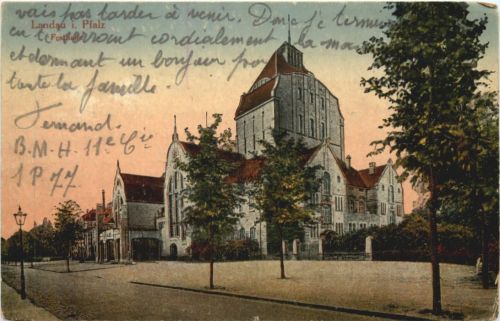 vais pas tarder à venir. Donc je termine
Landau i. Pfalz
Festhalle
en te serrant cordialement la main
et donnant un bonjour pour
toute la famille.
Fernand.
B-M-H- 11e Cie
1 P. 77